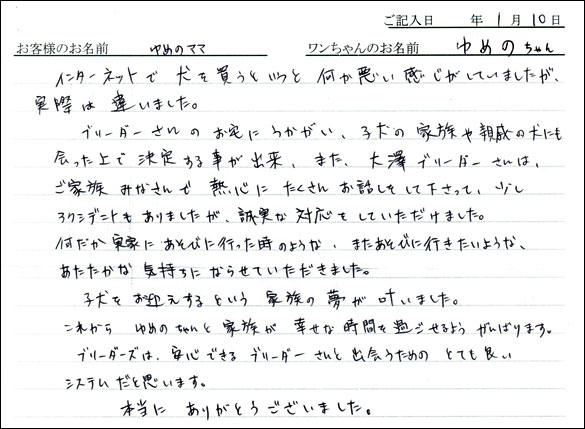 ご記入日 年 1月 10日
お客様のお名前 ゆめのママ ワンちゃんのお名前 ゆめのちゃん
インターネットで犬を買うというと何か悪い感じがしていましたが、
実際は違いました。
ブリーダーさんのお宅にうかがい、子犬の家族や親戚の犬にも
会った上で決定する事が出来、また、大澤ブリーダーさんは、
ご家族みなさんで熱心にたくさんお話しをして下さって、少し
アクシデントもありましたが、誠実な対応をしていただけました。
何だか実家にあそびに行った時のような、またあそびに行きたいような、
あたたかな気持ちにならせていただきました。
子犬をお迎えするという家族の夢が叶いました。
これからゆめのちゃんと家族が幸せな時間を過ごせるようがんばります。
ブリーダーズは、安心できるブリーダーさんと出会うためのとても良い
システムだと思います。
本当にありがとうございました。